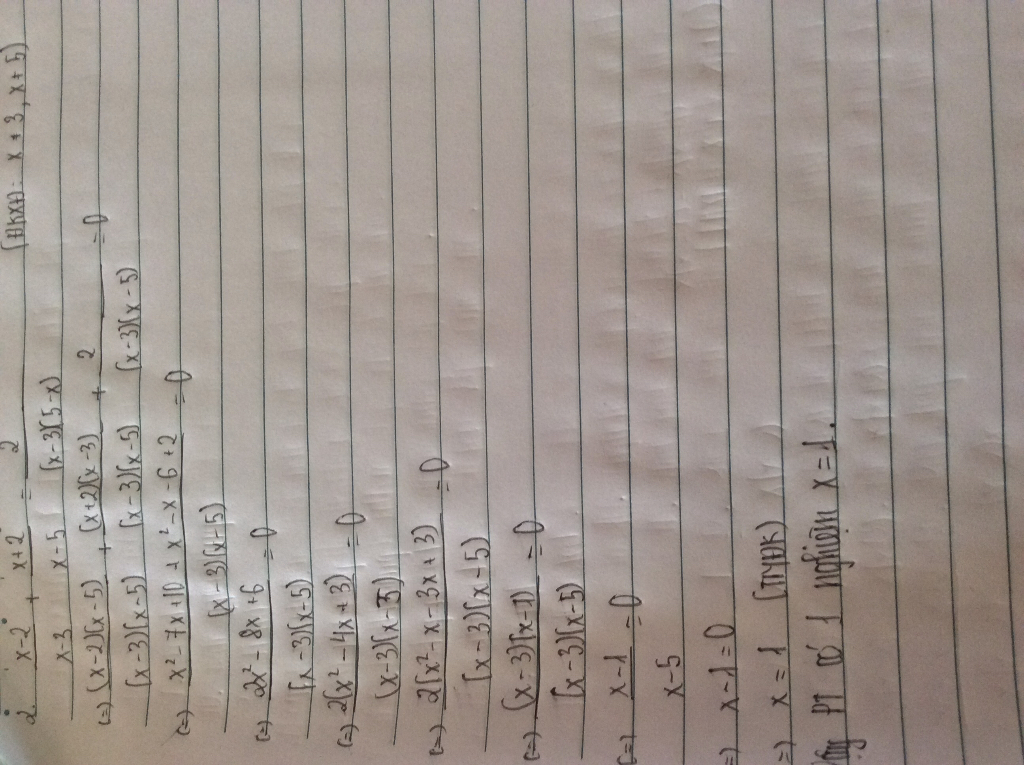 2. x-2/x-3 + x+2/x-5 = 2/(x-3)(5-x) (ĐKXĐ: x ≠ 3, x ≠ 5)
(=) (x-2)(x-5)/(x-3)(x-5) + (x+2)(x-3)/(x-3)(x-5) + 2/(x-3)(x-5) = 0
(=) x²-7x+10+x²-x-6+2/(x-3)(x-5) = 0
(=) 2x²-8x+6/(x-3)(x-5) = 0
(=) 2(x²-4x+3)/(x-3)(x-5) = 0
(=) 2(x²-x-3x+3)/(x-3)(x-5) = 0
(=) (x-3)(x-1)/(x-3)(x-5) = 0
(=) x-1/x-5 = 0
=) x-1=0
=) x=1 (TMĐK)
Vậy PT có 1 nghiệm x=1.